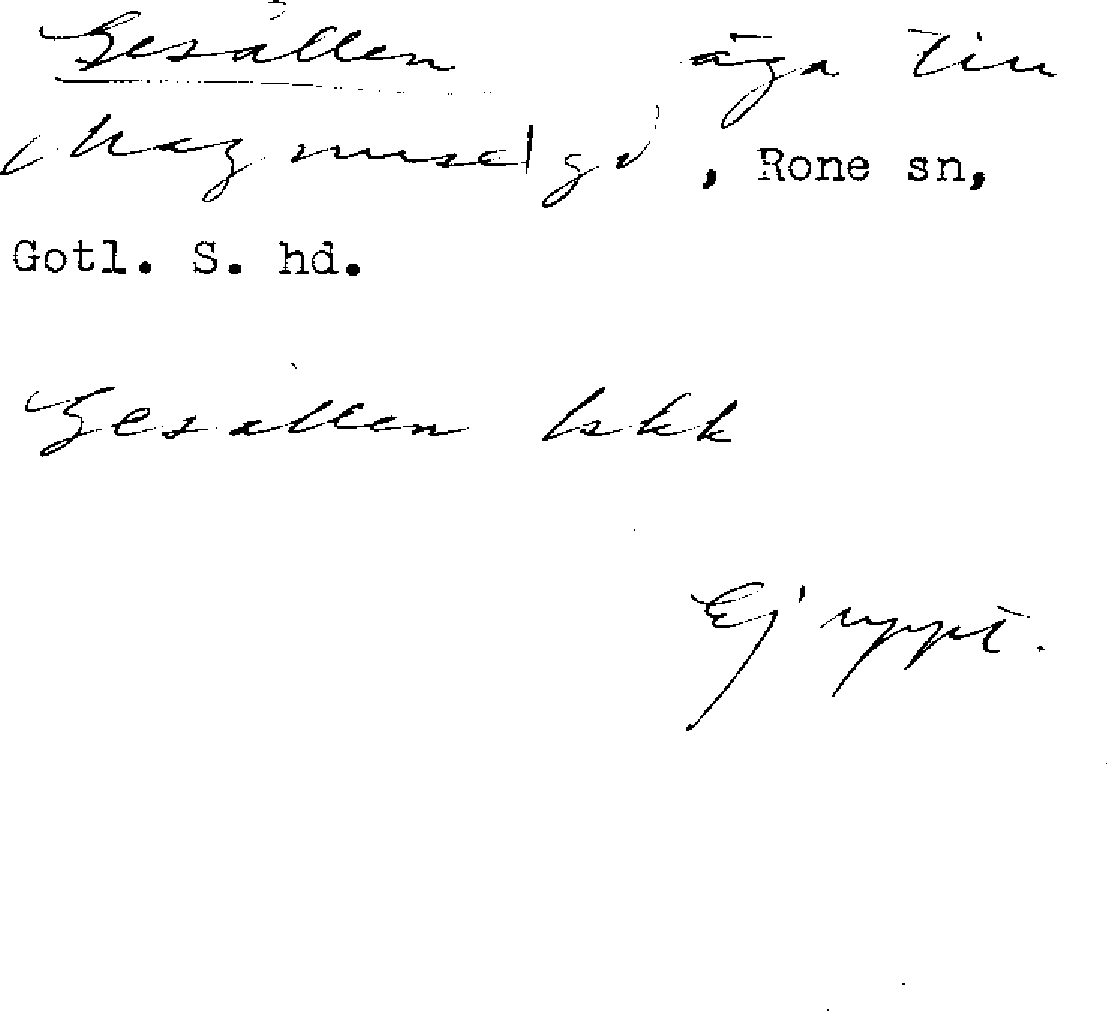 Gesällen äga till
Magnuse gd, Rone sn,
Gotl. S. hd.
Gesällen bskk
Ej uppt.